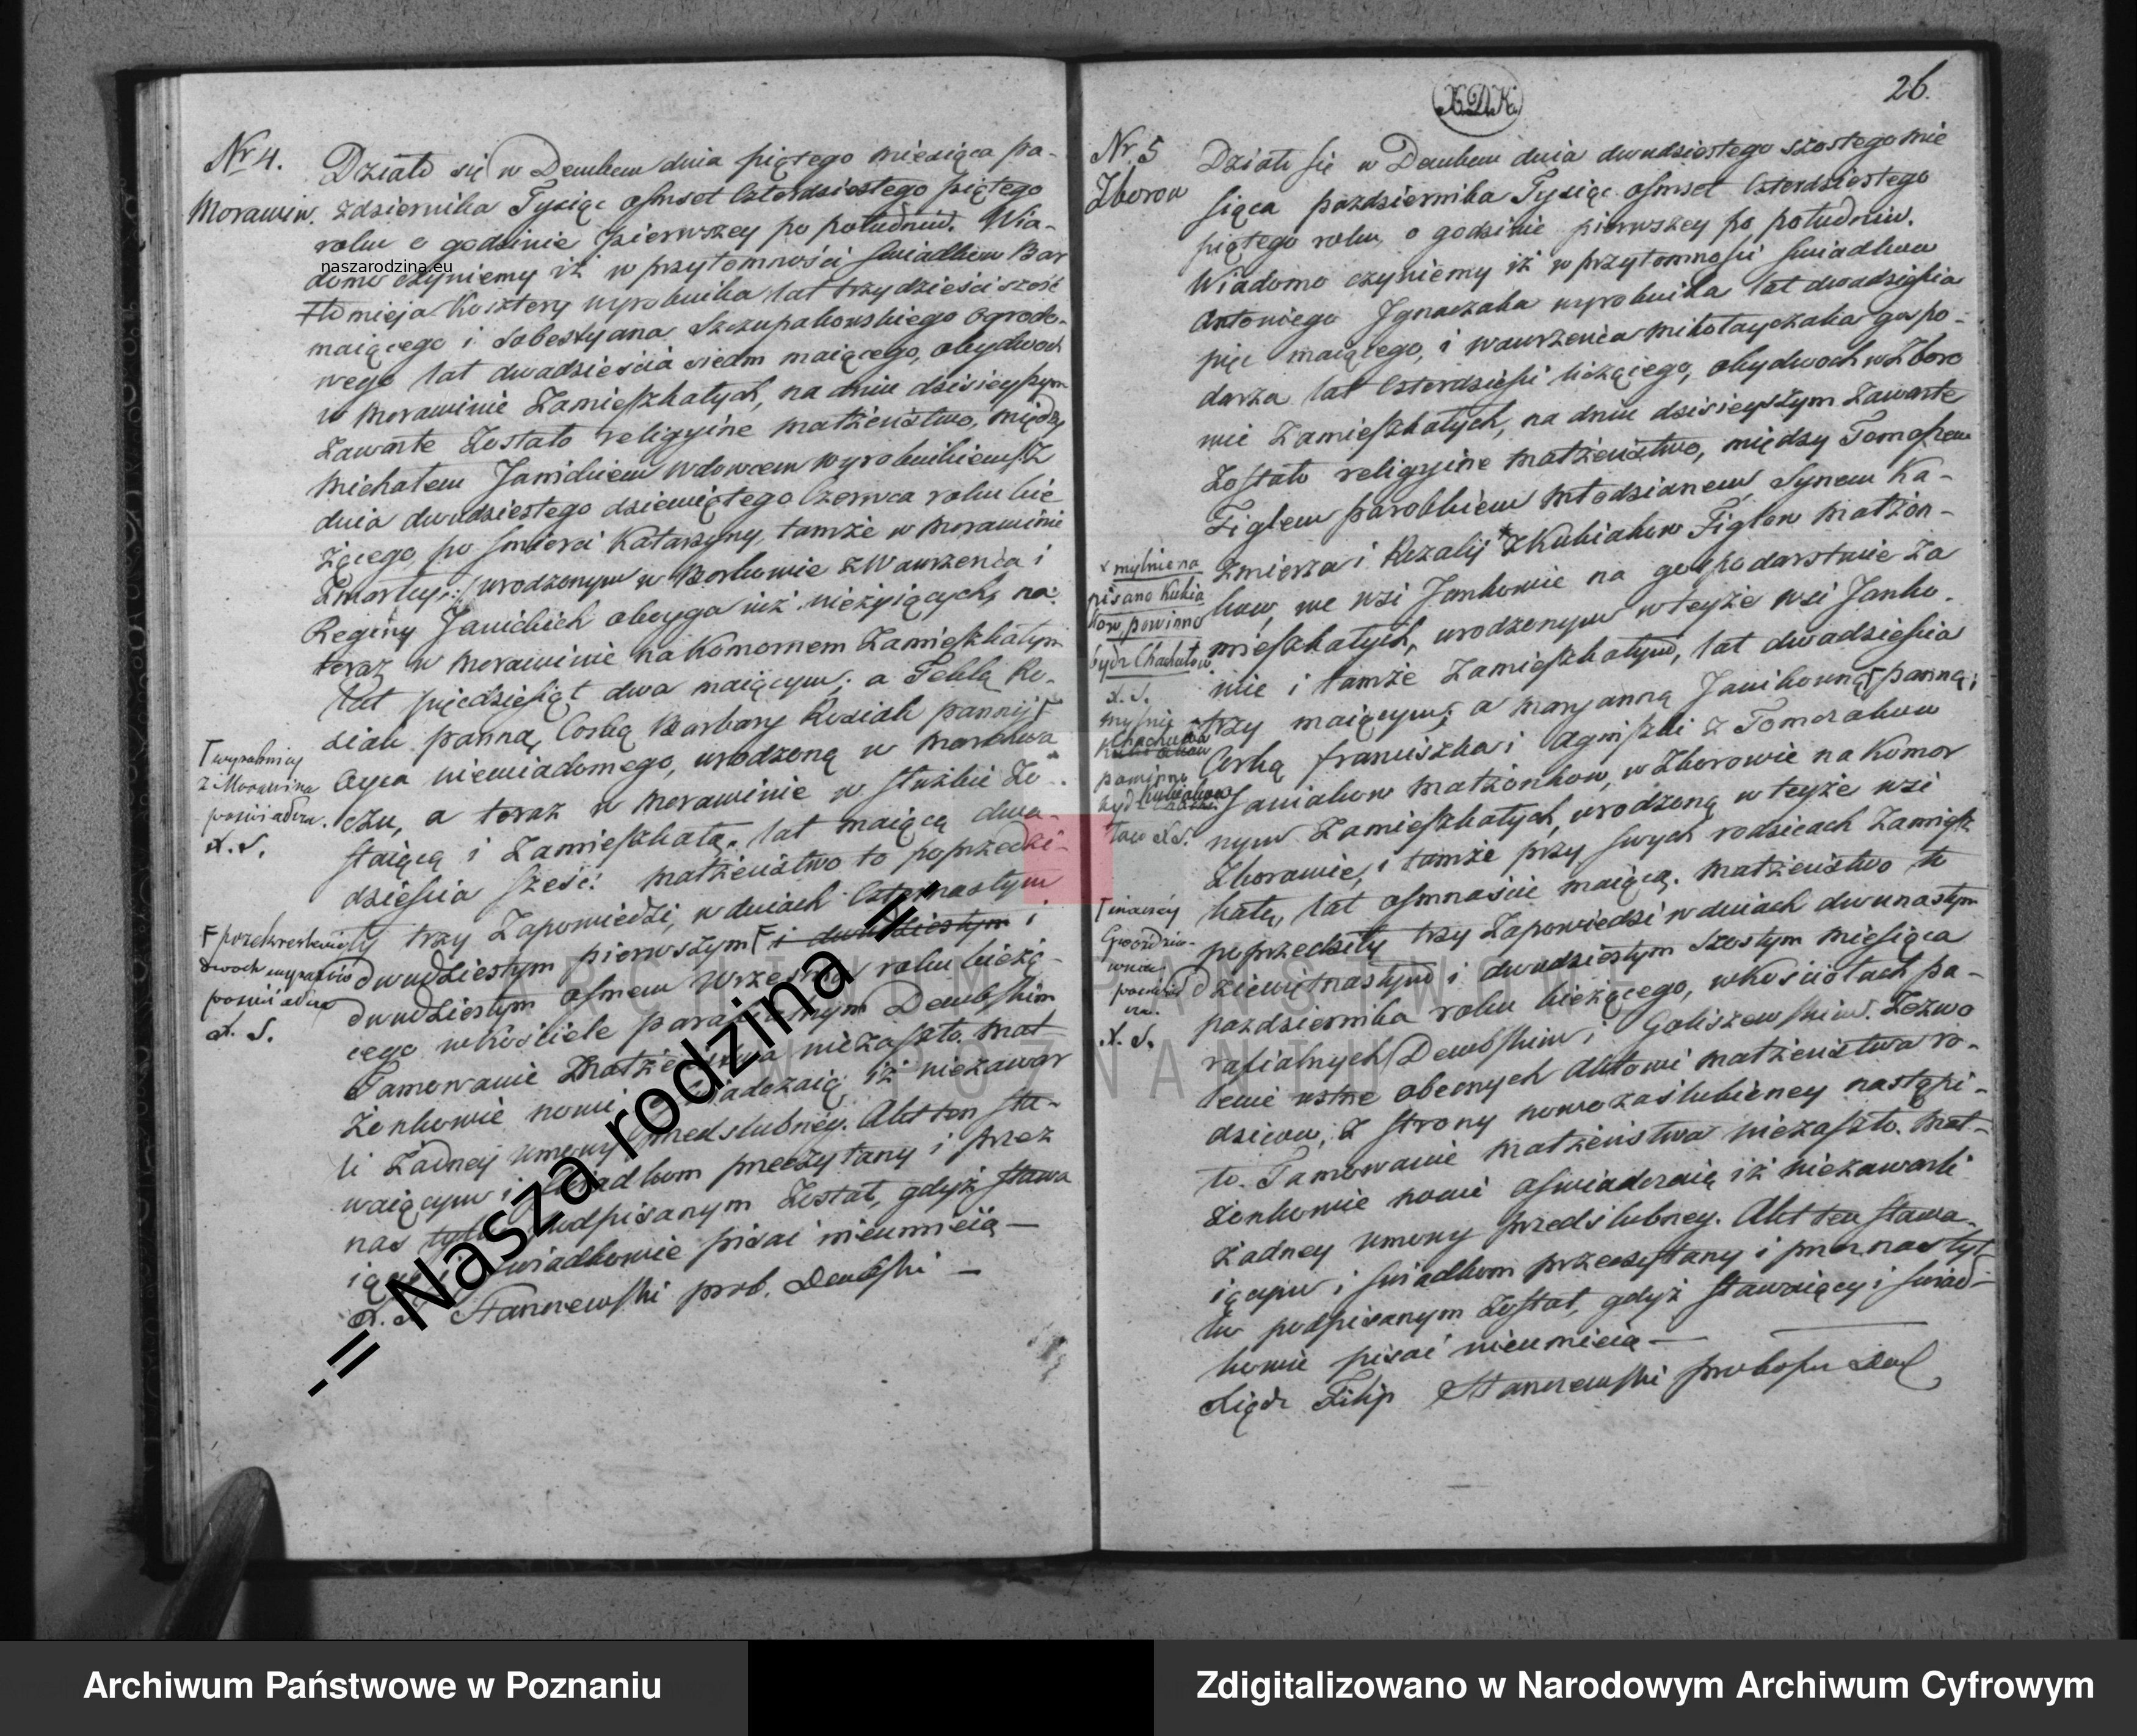 Nr 4.
Morawin.
Działo się w Dembem dnia piątego miesiąca pa-
zdziernika Tysiąc osmset Czterdziestego piątego
roku o godzinie pierwszey po południu. Wia-
domo czyniemy iż w przytomności świadkow Bar
tłomieja Kosztery wyrobnika lat trzydzieści szość
maiącego i Sobestyana Szczupakowskiego ogrodo-
wego lat dwadzieścia siedm maiącego, obydwoch
w Morawinie Zamieszkałych, na dniu dzisieyszym
Zawarte Zostało religyine małżeństwo, między
Michałem Janickiem wdowcem wyrobnikiem /: Z
dnia dwudziestego dziewiątego Czerwca roku bie
żącego, po śmierci Katarzyny, tamże w Morawinie
Zmarłey :/ urodzonym w Borkowie z Wawrzeńca i
Reginy Janickich oboyga już nieżyiących, na
teraz w Morawinie na Komornem Zamieszkałym
lat pięćdziesiąt dwa maiącym; a Teklą Ro-
siak panną, Corką Barbary Rosiak panny Γ
Oyca niewiadomego, urodzoną w
czu, a teraz w Morawinie w służbie Zo-
staiącą i Zamieszkałą, lat maiącą dwa-
dzieścia sześć. Małżeństwo to poprzedzi-
ły trzy Zapowiedzi, w dniach Czternastym
dwudziestym pierwszym F i dwudziestym i
dwudziestym osmem Września roku bieżą-
cego w kościele parafialnym Dembskim
Tamowanie Małżeństwa niezaszło. Mał
żonkowie nowi oświadczaią iż niezawar
li żadney umowy przedślubney. Akt ten sta-
waiącym i świadkom przeczytany i przez
nas tylko podpisanym Został, gdyż stawa
iący i świadkowie pisać nieumieią —
X. F. Stanczewski prob. Dembski —
Γ wyrobnicy
z Morawina
poświadcza.
X. S.
F przekreślenie
dwoch wyrazow
poświadcza
X. S.
naszarodzina.eu
-= Nasza rodzina =-
X.D.K.
26.
Nr. 5
Zborow
Działo się w Dembem dnia dwudziestego szostego mie
siąca pazdziernika Tysiąc osmset Czterdziestego
piątego roku o godzinie pierwszey po południu.
Wiadomo czyniemy iż w przytomności świadkow
Antoniego Ignaczaka wyrobnika lat dwadzieścia
pięć maiącego, i Wawrzeńca Mikołayczaka gospo-
darza lat Czterdzieści liczącego, obydwoch w Zboro
wie Zamieszkałych, na dniu dzisieyszym Zawarte
Zostało religyine małżeństwo, między Tomaszem
Figlem parobkiem Młodzianem, Synem Ka-
zmierza i Rozalii x Z Kubiakow Figlow małżon-
kow, we wsi Jankowie na gospodarstwie Za
mieszkałych, urodzonym w teyże wsi Janko-
wie i tamże Zamieszkałym, lat dwadzieścia
trzy maiącym; a Maryanną Janikowną Γ panną,
Corką Franciszka i Agniszki z Tomczakow
Janiakow małżonkow, w Zborowie na Komor
nym Zamieszkałych, urodzoną w teyże wsi
Zborowie, i tamże przy swych rodzicach Zamiesz
kałą, lat osmnaście maiącą. Małżeństwo to
poprzedziły trzy Zapowiedzi w dniach dwunastym
dziewiętnastym i dwudziestym szostym miesiąca
pazdziernika roku bieżącego, w kościołach pa-
rafialnych Dembskim i Goliszewskim. Zezwo
lenie ustne obecnych Aktowi małżeństwa ro-
dzicow, z strony nowozaślubioney nastąpi-
ło. Tamowanie małżeństwa niezaszło. Mał-
żonkowie nowi oświadczaią iż niezawarli
żadney umowy przedślubney. Akt ten stawa-
iącym i świadkom przeczytany i przez nas tyl
ko podpisanym Został, gdyż stawaiący i świad-
kowie pisać nieumieią —
Xiądz Filip Stanczewski proboszcz Dem
x mylnie na
pisano Kubia
kow powinno
bydz Chachułow
X. S.
mylnie
powinno
bydz
X. S.
Γ inaczey
Gwozdzio-
wna
poświad
cza.
X. S.
ARCHIWUM PAŃSTWOWE
W POZNANIU
Archiwum Państwowe w Poznaniu
Zdigitalizowano w Narodowym Archiwum Cyfrowym